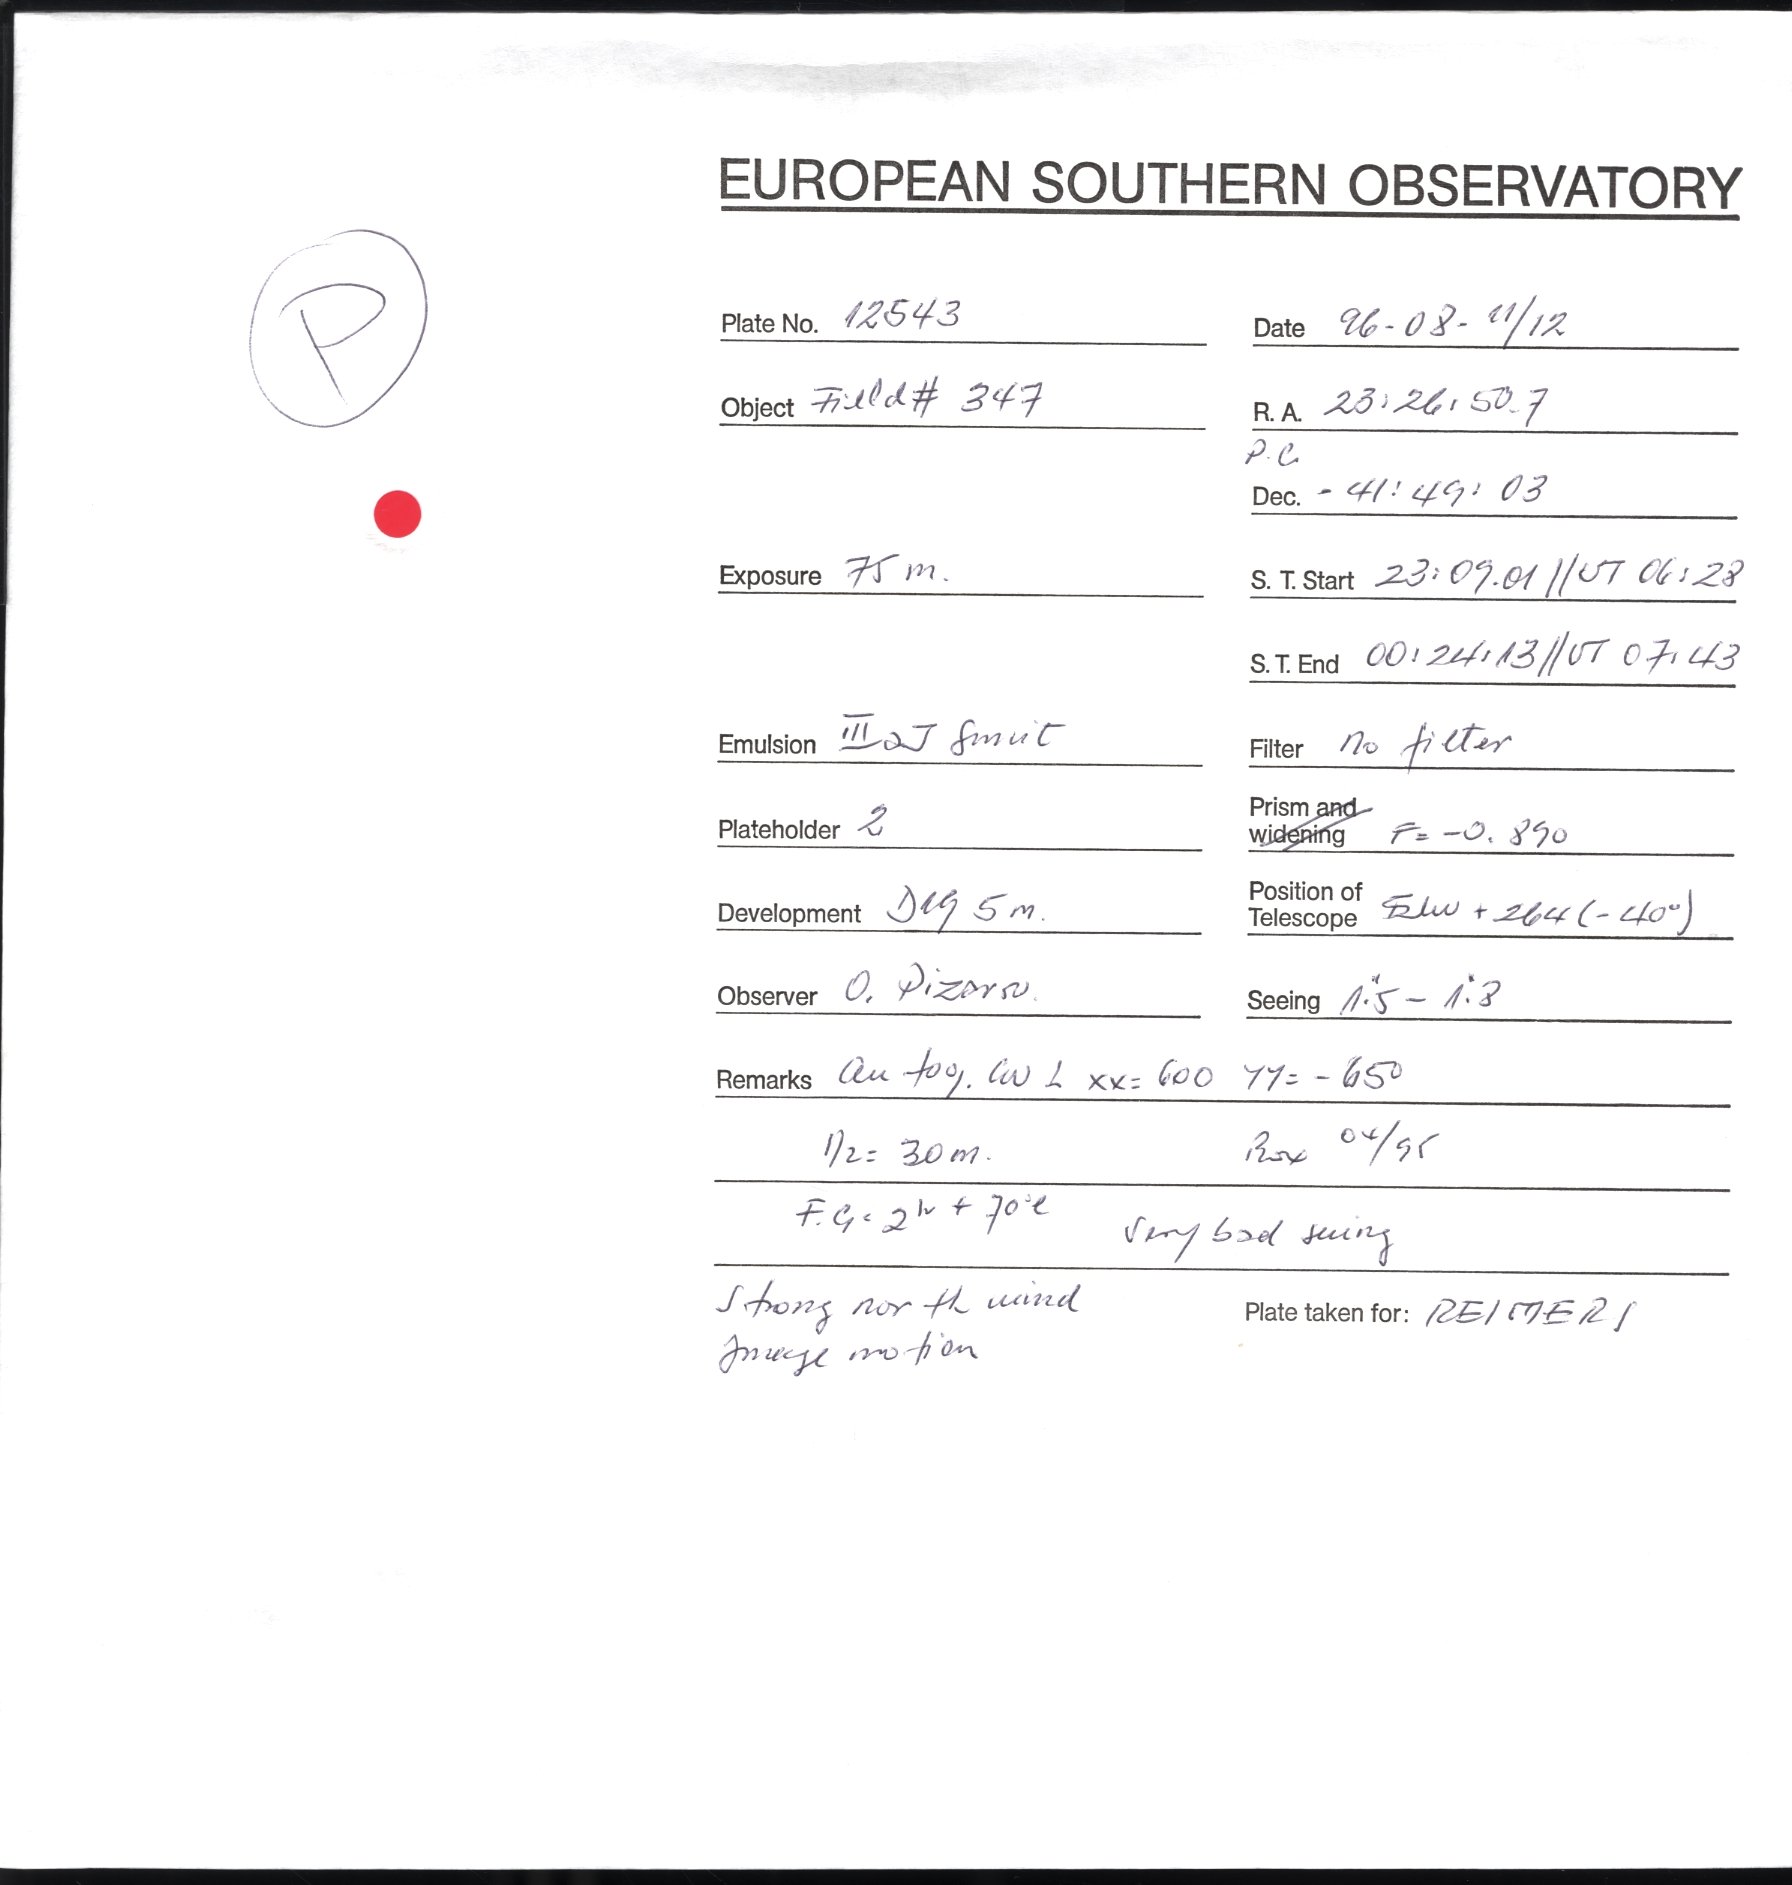 EUROPEAN SOUTHERN OBSERVATORY
P
Plate No. 12543 Date 96-08-11/12
Object Field# 347 R. A. 23:26:50.7
P.C.
Dec. - 41:49:03
Exposure 75 m. S. T. Start 23:09.01//UT 06:28
S. T. End 00:24:13//UT 07:43
Emulsion IIIaJ Filter no filter
Plateholder 2 Prism and
widening F= -0.890
Development D19 5 m. Position of
Telescope + 264 (-40°)
Observer O. Pizarro. Seeing 1".5 - 1".8
Remarks xx= 600 YY= -650
= 30 m. Box 04/95
F.G= 2h + 70 Very bad seeing
Strong north wind
Image motion
Plate taken for: REIMERS